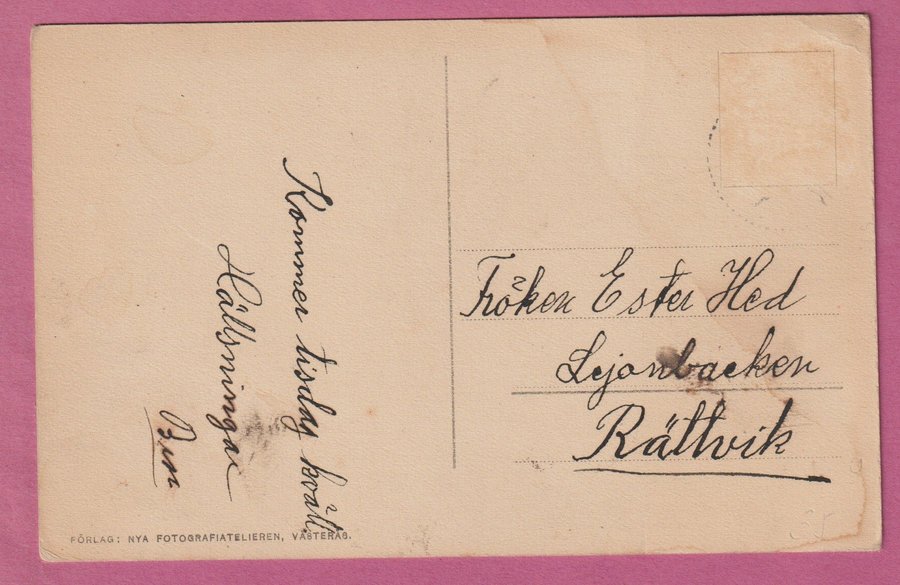 Kommer tisdag kväll.
Hälsningar
Fröken Ester Hed
Lejonbacken
Rättvik
FÖRLAG: NYA FOTOGRAFIATELIEREN, VÄSTERÅS.